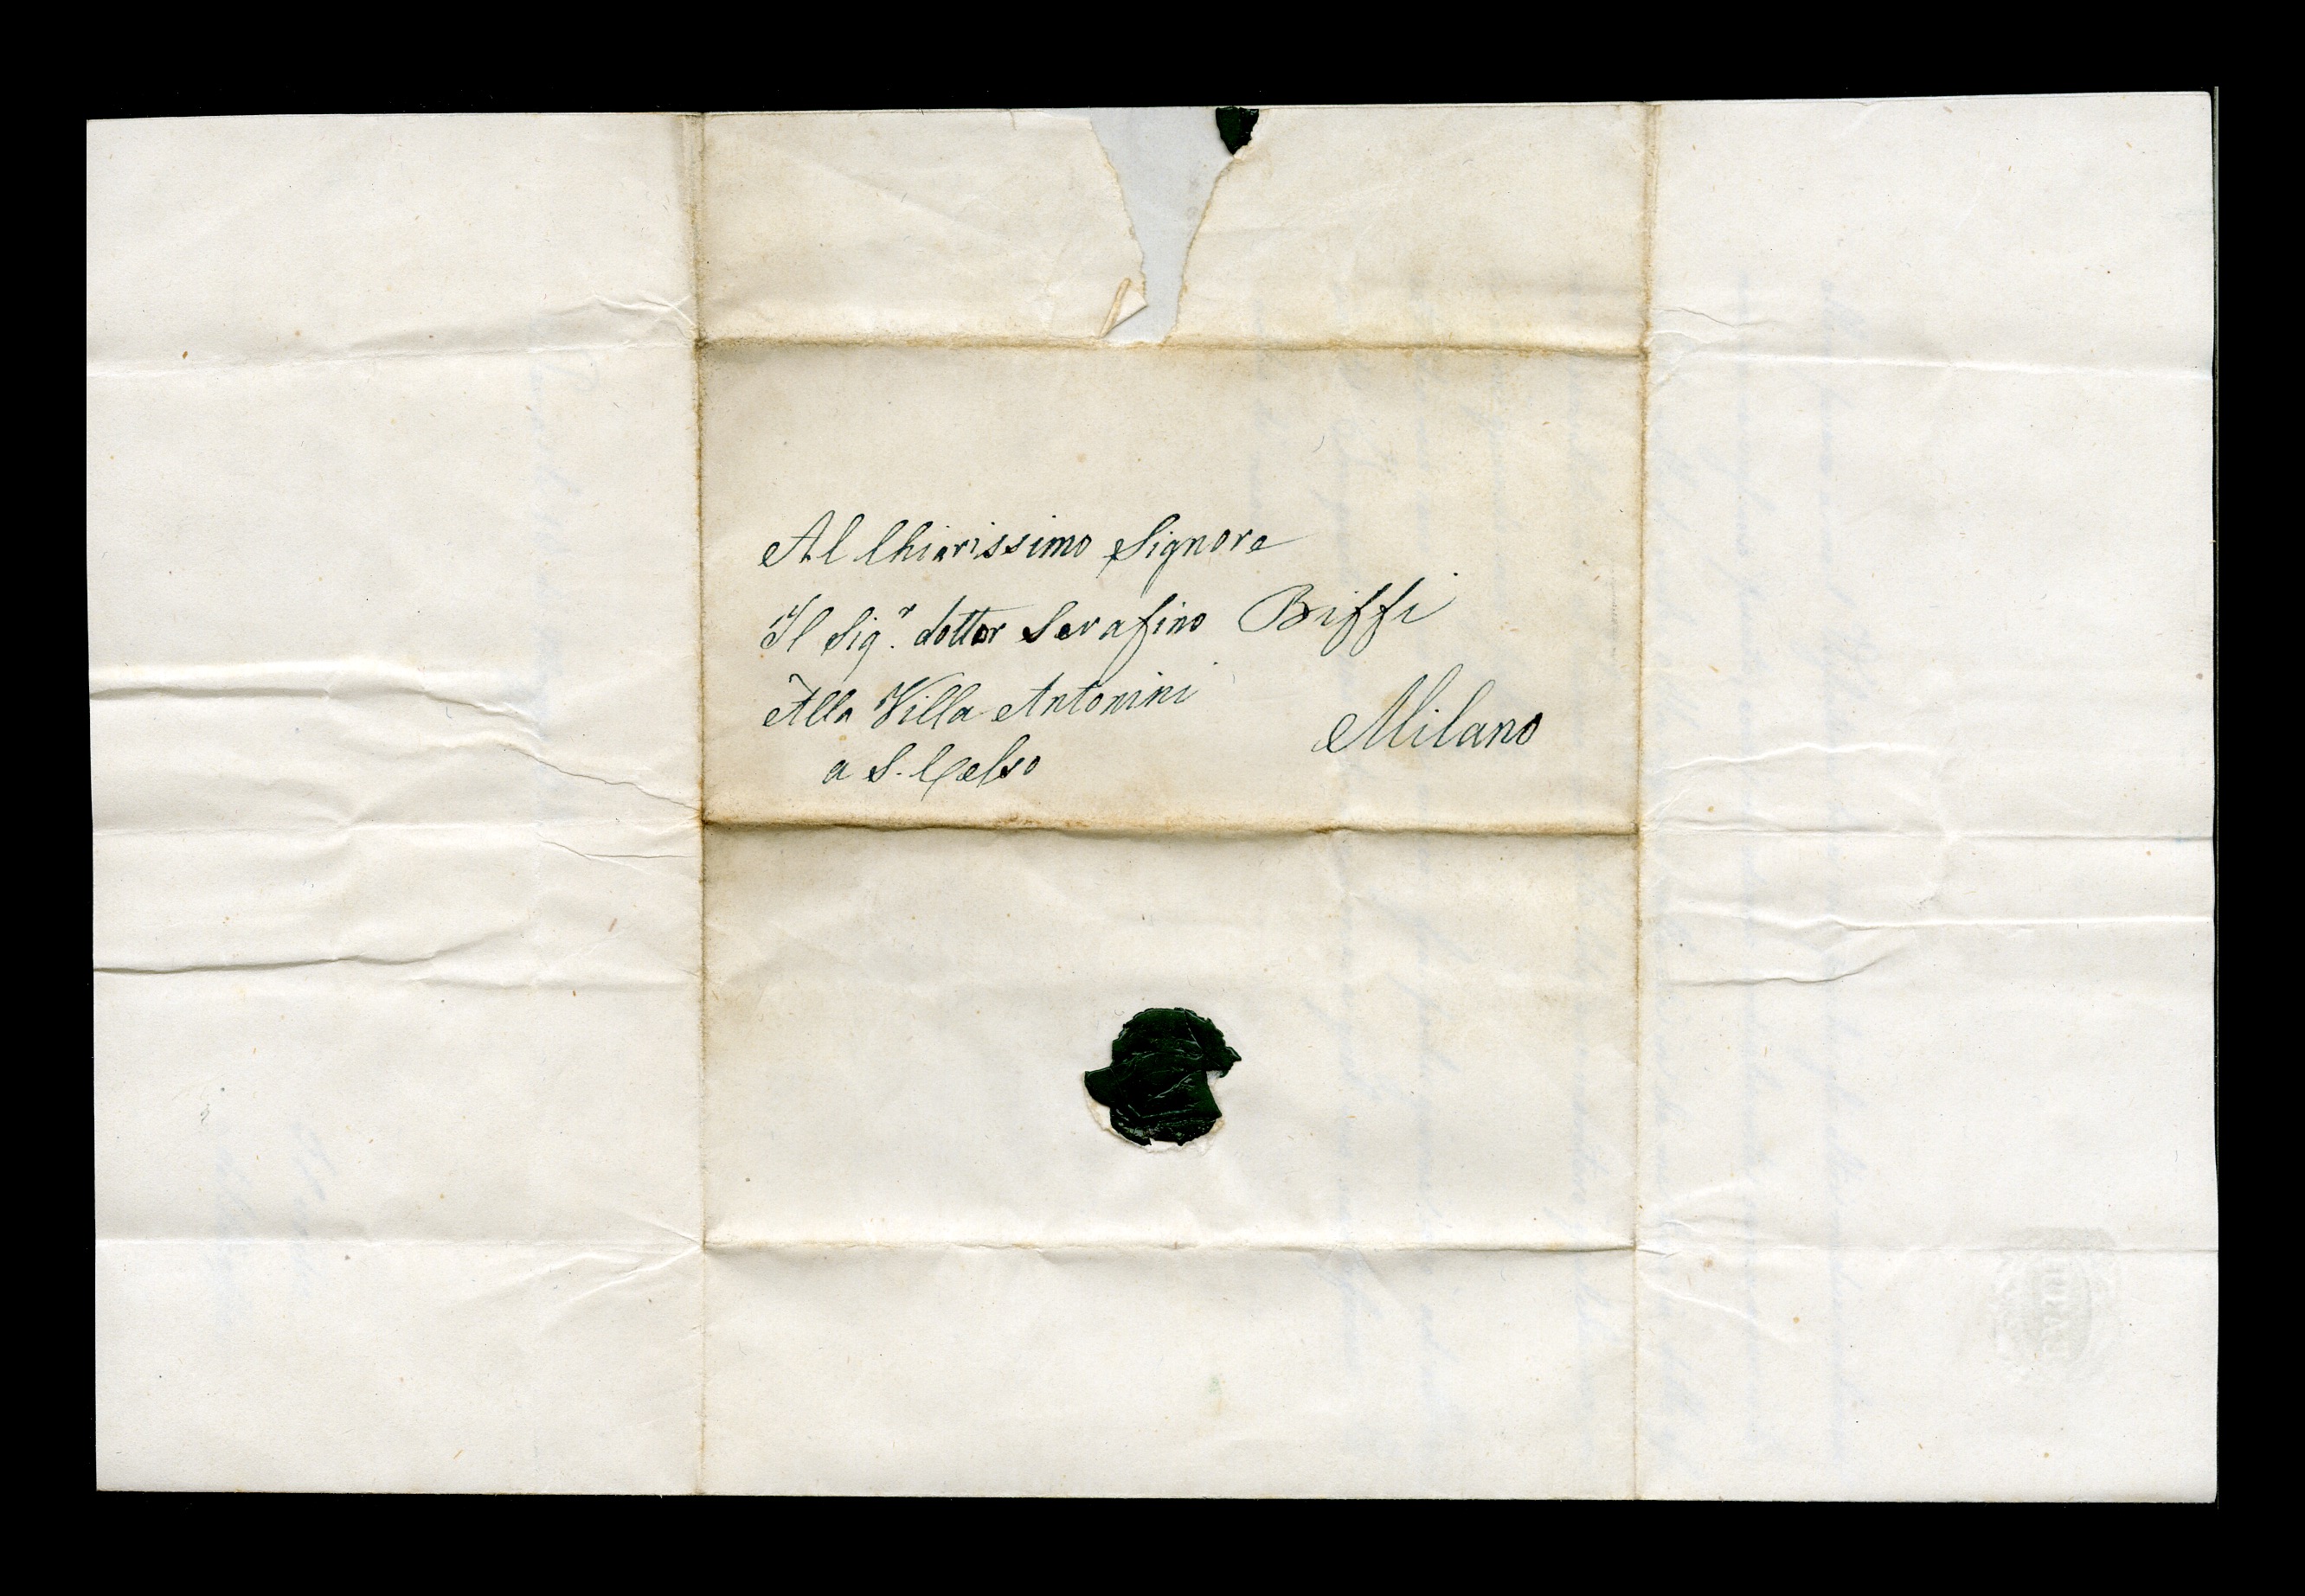 Al Chiarissimo Signore
Il Sig.r dottor Serafino Biffi
Alla Villa Antonini
a S. Celso
Milano